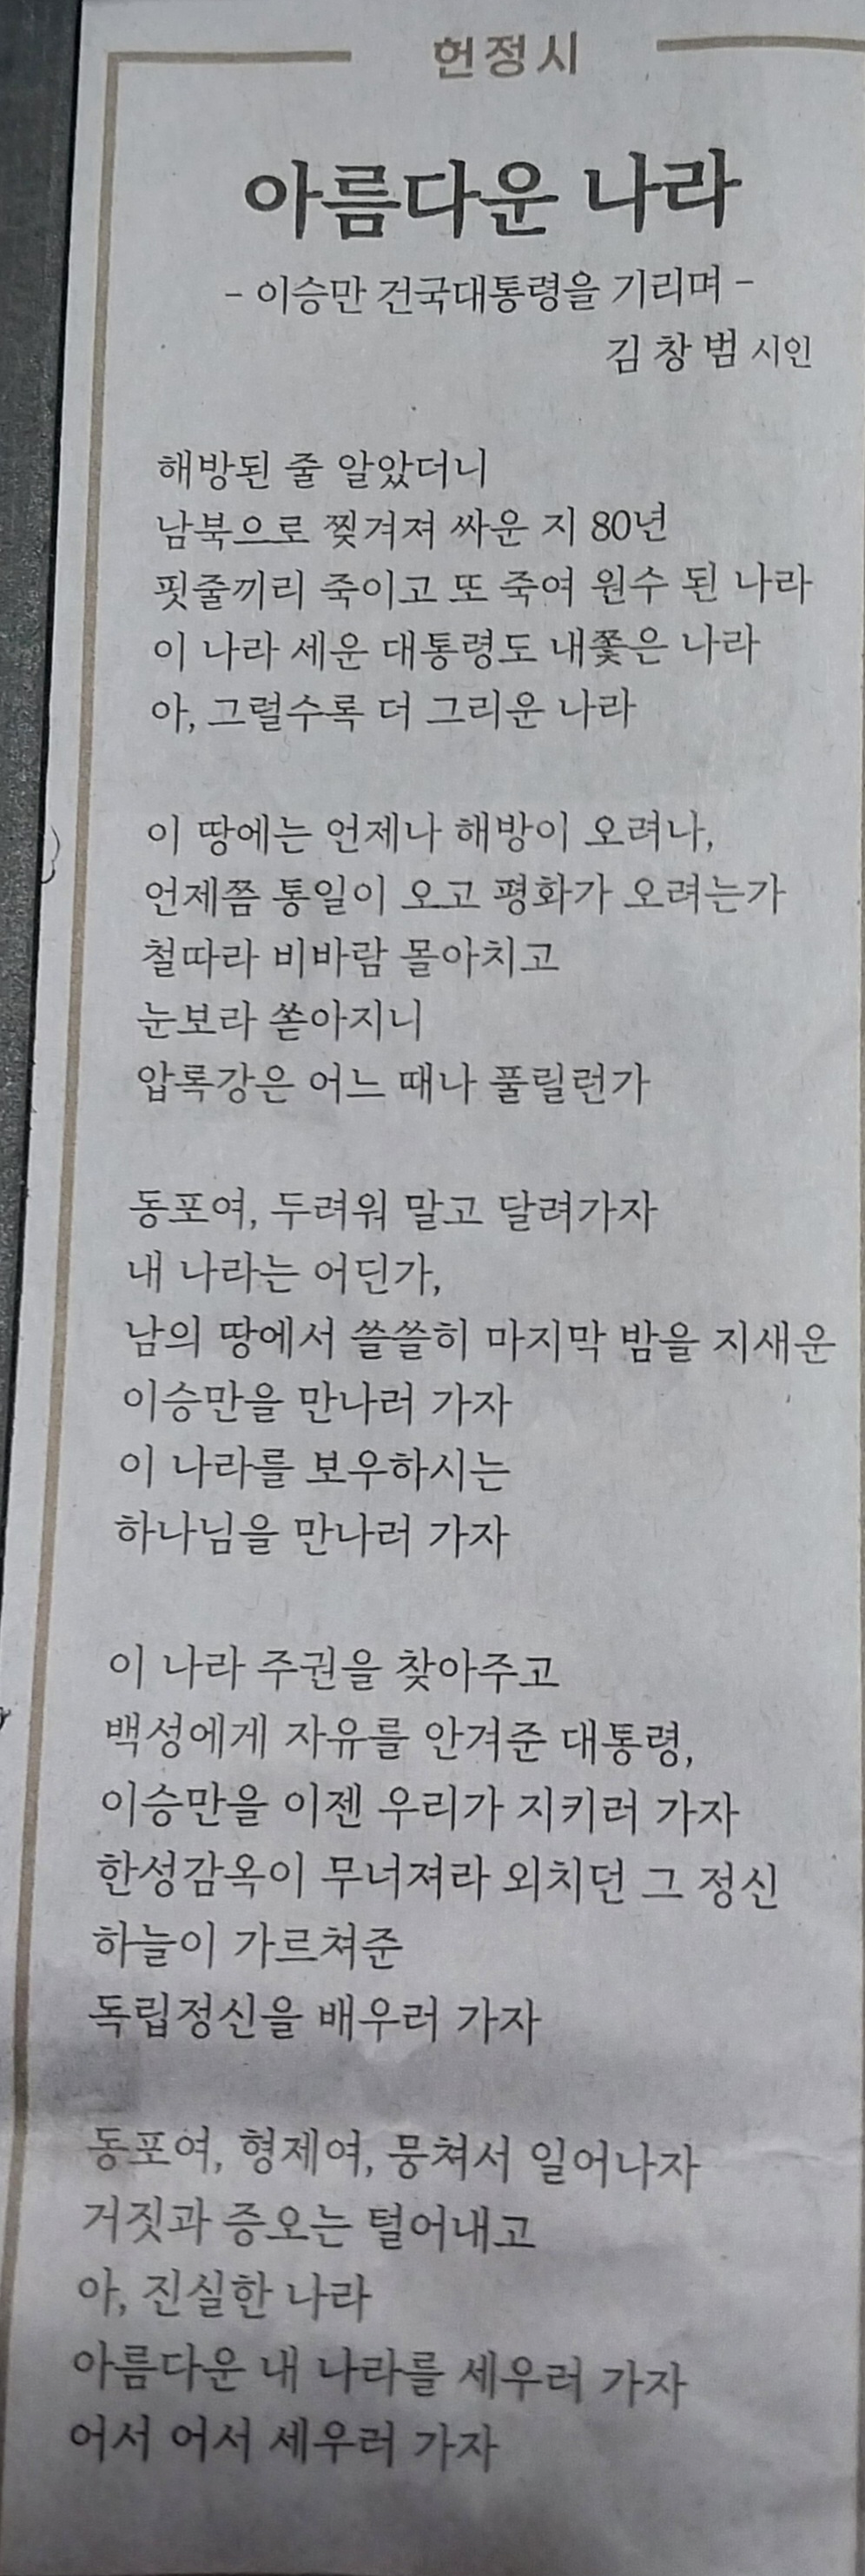 헌정시
아름다운 나라
- 이승만 건국대통령을 기리며 -
김창범 시인
해방된 줄 알았더니
남북으로 찢겨져 싸운 지 80년
핏줄끼리 죽이고 또 죽여 원수 된 나라
이 나라 세운 대통령도 내쫓은 나라
아, 그럴수록 더 그리운 나라
이 땅에는 언제나 해방이 오려나,
언제쯤 통일이 오고 평화가 오려는가
철따라 비바람 몰아치고
눈보라 쏟아지니
압록강은 어느 때나 풀릴런가
동포여, 두려워 말고 달려가자
내 나라는 어딘가,
남의 땅에서 쓸쓸히 마지막 밤을 지새운
이승만을 만나러 가자
이 나라를 보우하시는
하나님을 만나러 가자
이 나라 주권을 찾아주고
백성에게 자유를 안겨준 대통령,
이승만을 이젠 우리가 지키러 가자
한성감옥이 무너져라 외치던 그 정신
하늘이 가르쳐준
독립정신을 배우러 가자
동포여, 형제여, 뭉쳐서 일어나자
거짓과 증오는 털어내고
아, 진실한 나라
아름다운 내 나라를 세우러 가자
어서 어서 세우러 가자